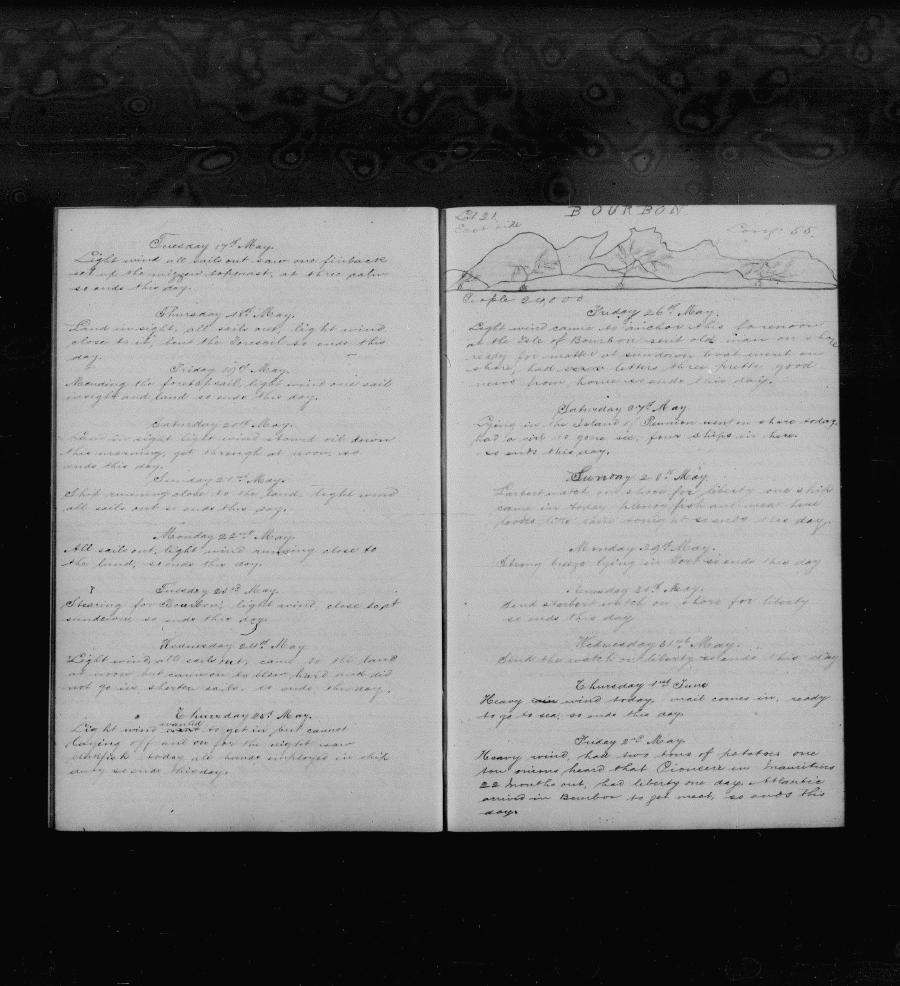 Tuesday 17th May.
Light wind all sails out saw one finback
set up the mizzen topmast, at three
so ends this day.
Thursday 18th May.
Land in sight, all sails out, light wind
close to it, but the foresail so ends this
day.
Friday 19th May.
Mending the foretopsail, light wind one sail
insight and land so ends this day.
Saturday 20th May.
Land in sight light wind stowed oil down
this morning, got through at noon, so
ends this day.
Sunday 21st May.
Ship running close to the land light wind
all sails out so ends this day.
Monday 22nd May.
All sails out, light wind running close to
the land, so ends this day.
Tuesday 23rd May.
Stearing for Bourbon, light wind, close
sundown, so ends this day.
Wednesday 24th May
Light wind, all sails out, came to the land
at noon but came on to blow hard and did
not go in, shorten sails. so ends this day.
Thursday 25th May.
Light wind wanted to get in but cannot
laying off and on for the night saw
today all hands employed in ship
duty so ends this day.
BOURBON
Lat 21
East side
Long. 55
People 24000
Friday 26th May.
Light wind came to anchor this forenoon
at the Isle of Bourbon sent old man on shore
ready for matter at sundown boat went on
shore, had letters three pretty good
news from home so ends this day.
Saturday 27th May
Lying in the Island of Reunion went on shore today,
had a to gone see, four ships in here.
so ends this day.
Sunday 28th May
Larbert watch on shore for liberty one ship
came in today plenty fish and meat here
looks like shore tonight so ends this day.
Monday 29th May.
Strong breeze lying in Port so ends this day
May.
Send sterbert watch on shore for liberty
so ends this day
Wednesday 31st May.
Send the watch on liberty so ends this day
Thursday 1st June
Heavy wind today, mail comes in, ready
to go to sea, so ends this day.
Friday 2nd May.
Heavy wind, had two tons of potatoes one
ton onions heard that Pioneer in Mauritius
22 months out, had liberty one day. Atlantic
arrived in Bourbon to get meat, so ends this
day.